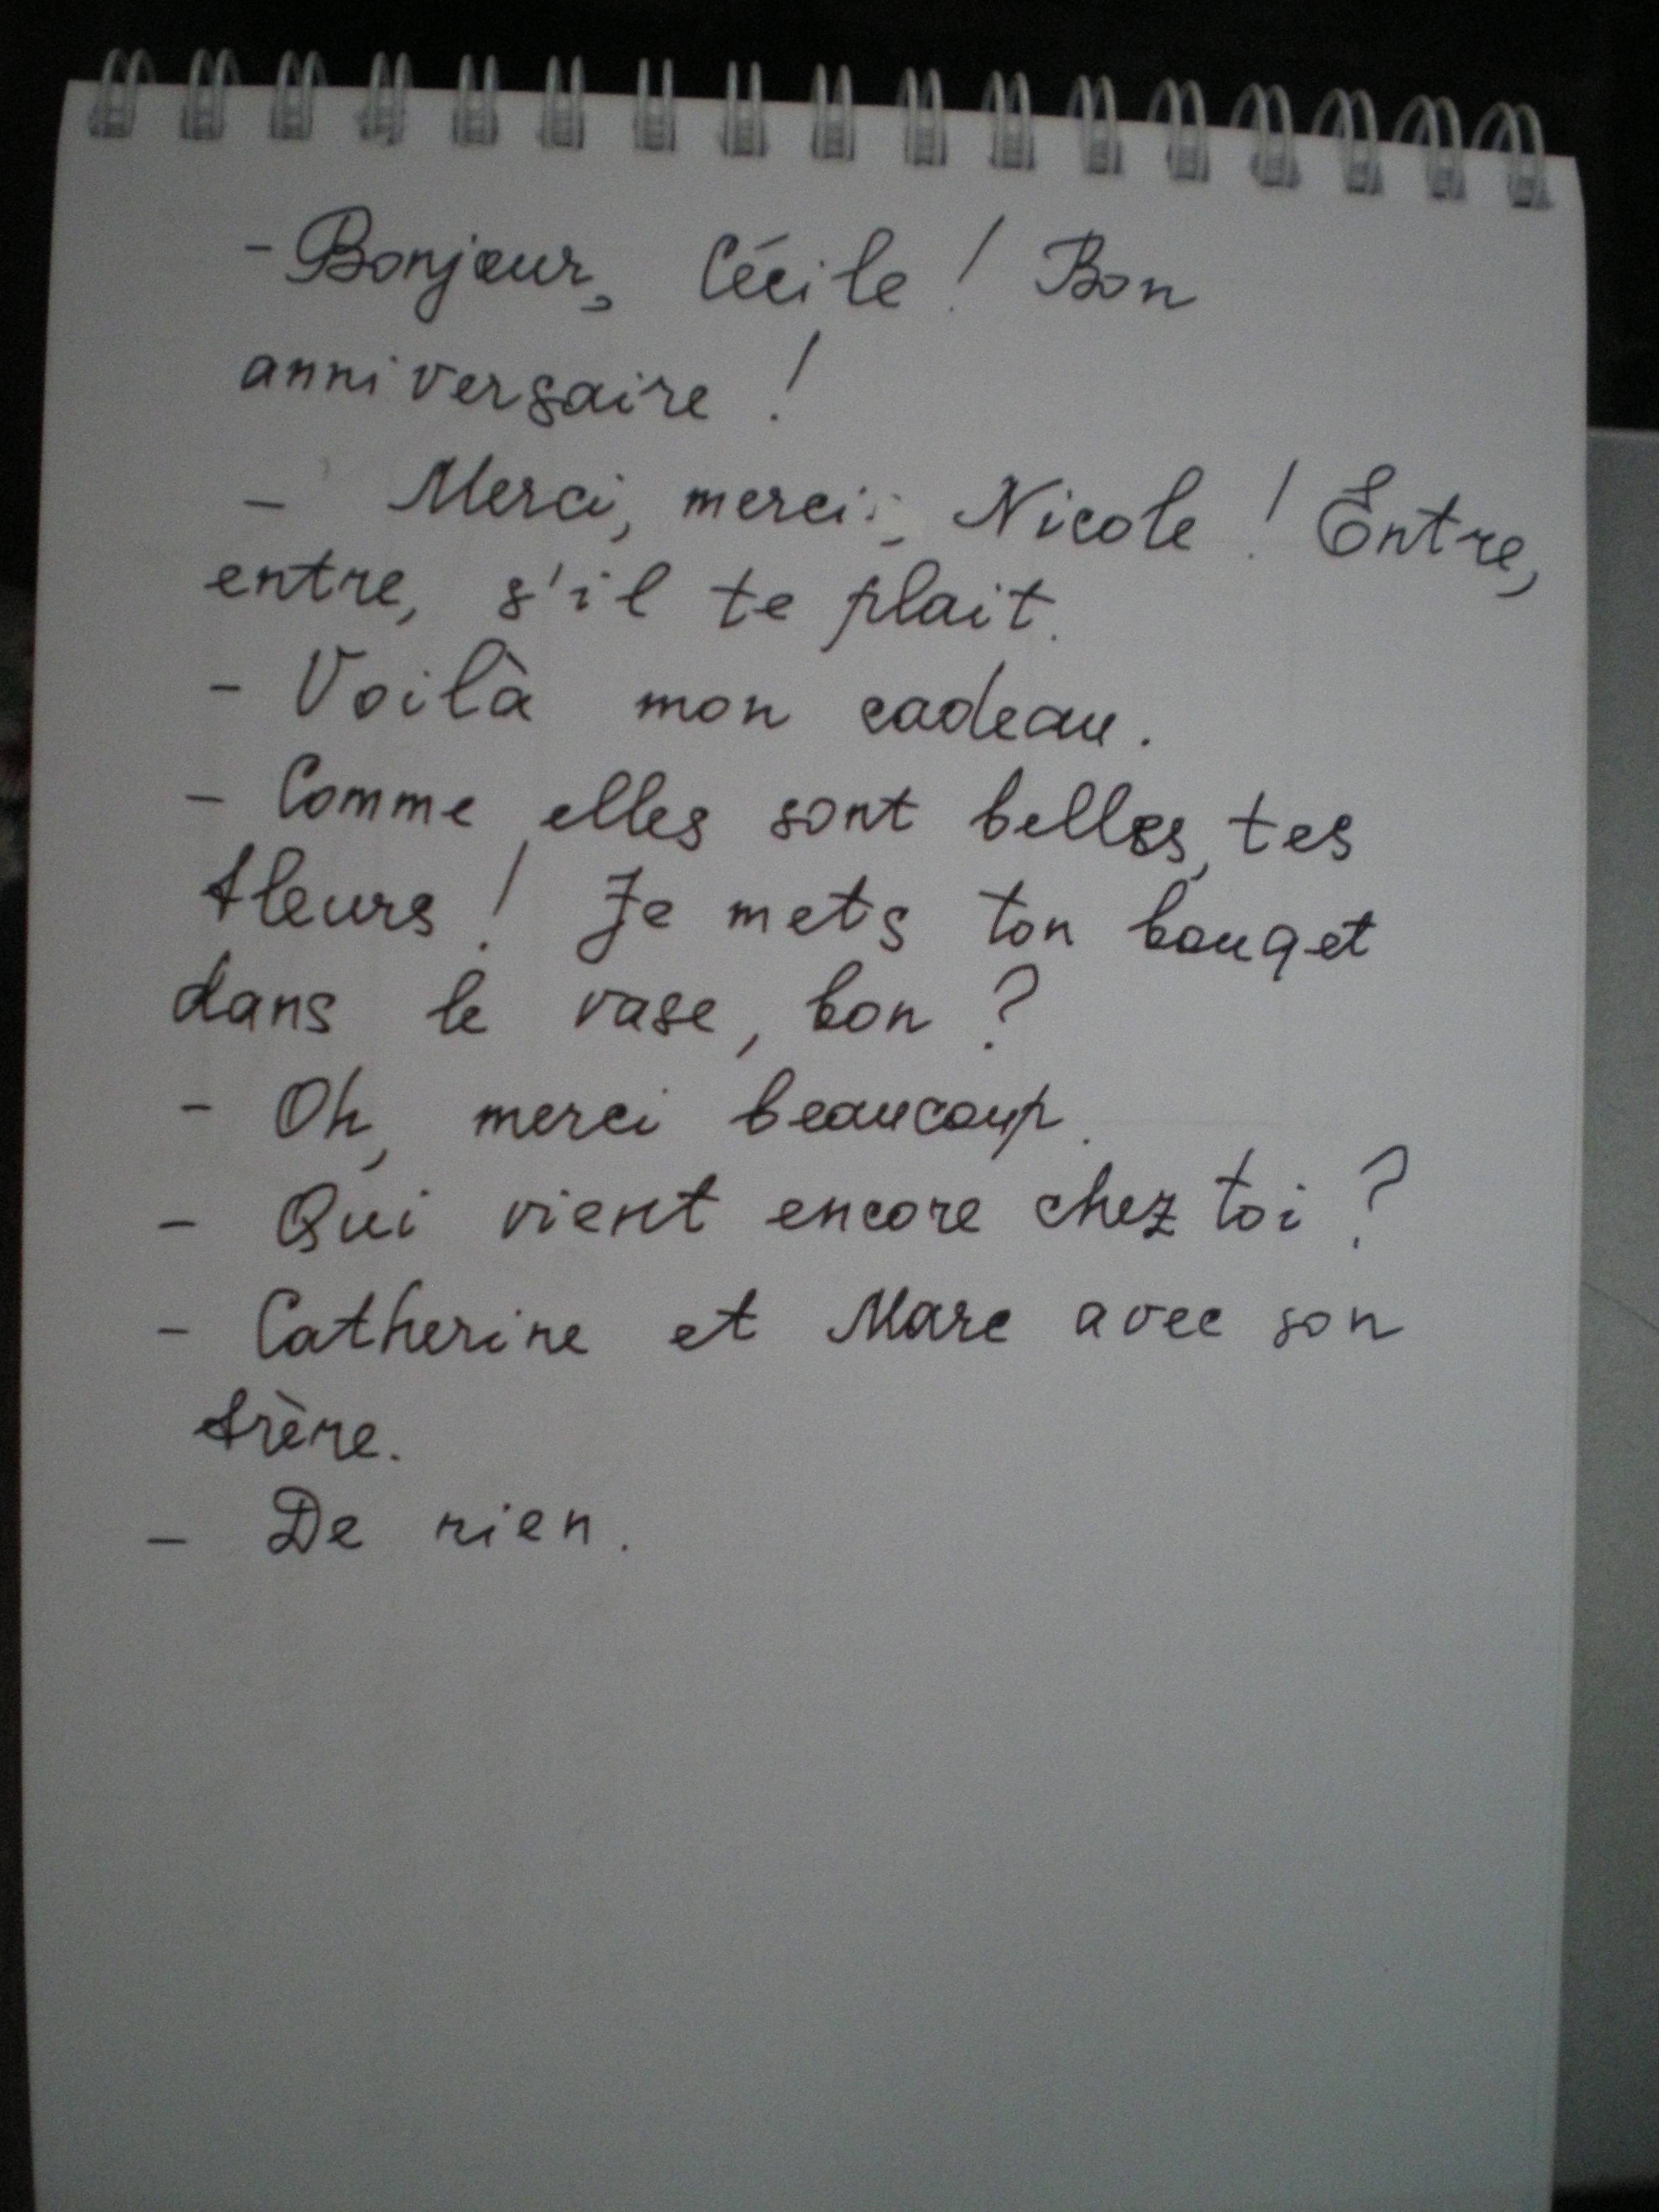 - Bonjour, Cécile ! Bon
anniversaire !
- Merci, merci, Nicole ! Entre,
entre, s'il te plait.
- Voilà mon cadeau.
- Comme elles sont belles, tes
fleurs ! Je mets ton bouqet
dans le vase, bon ?
- Oh, merci beaucoup.
- Qui vient encore chez toi ?
- Catherine et Marc avec son
frère.
- De rien.